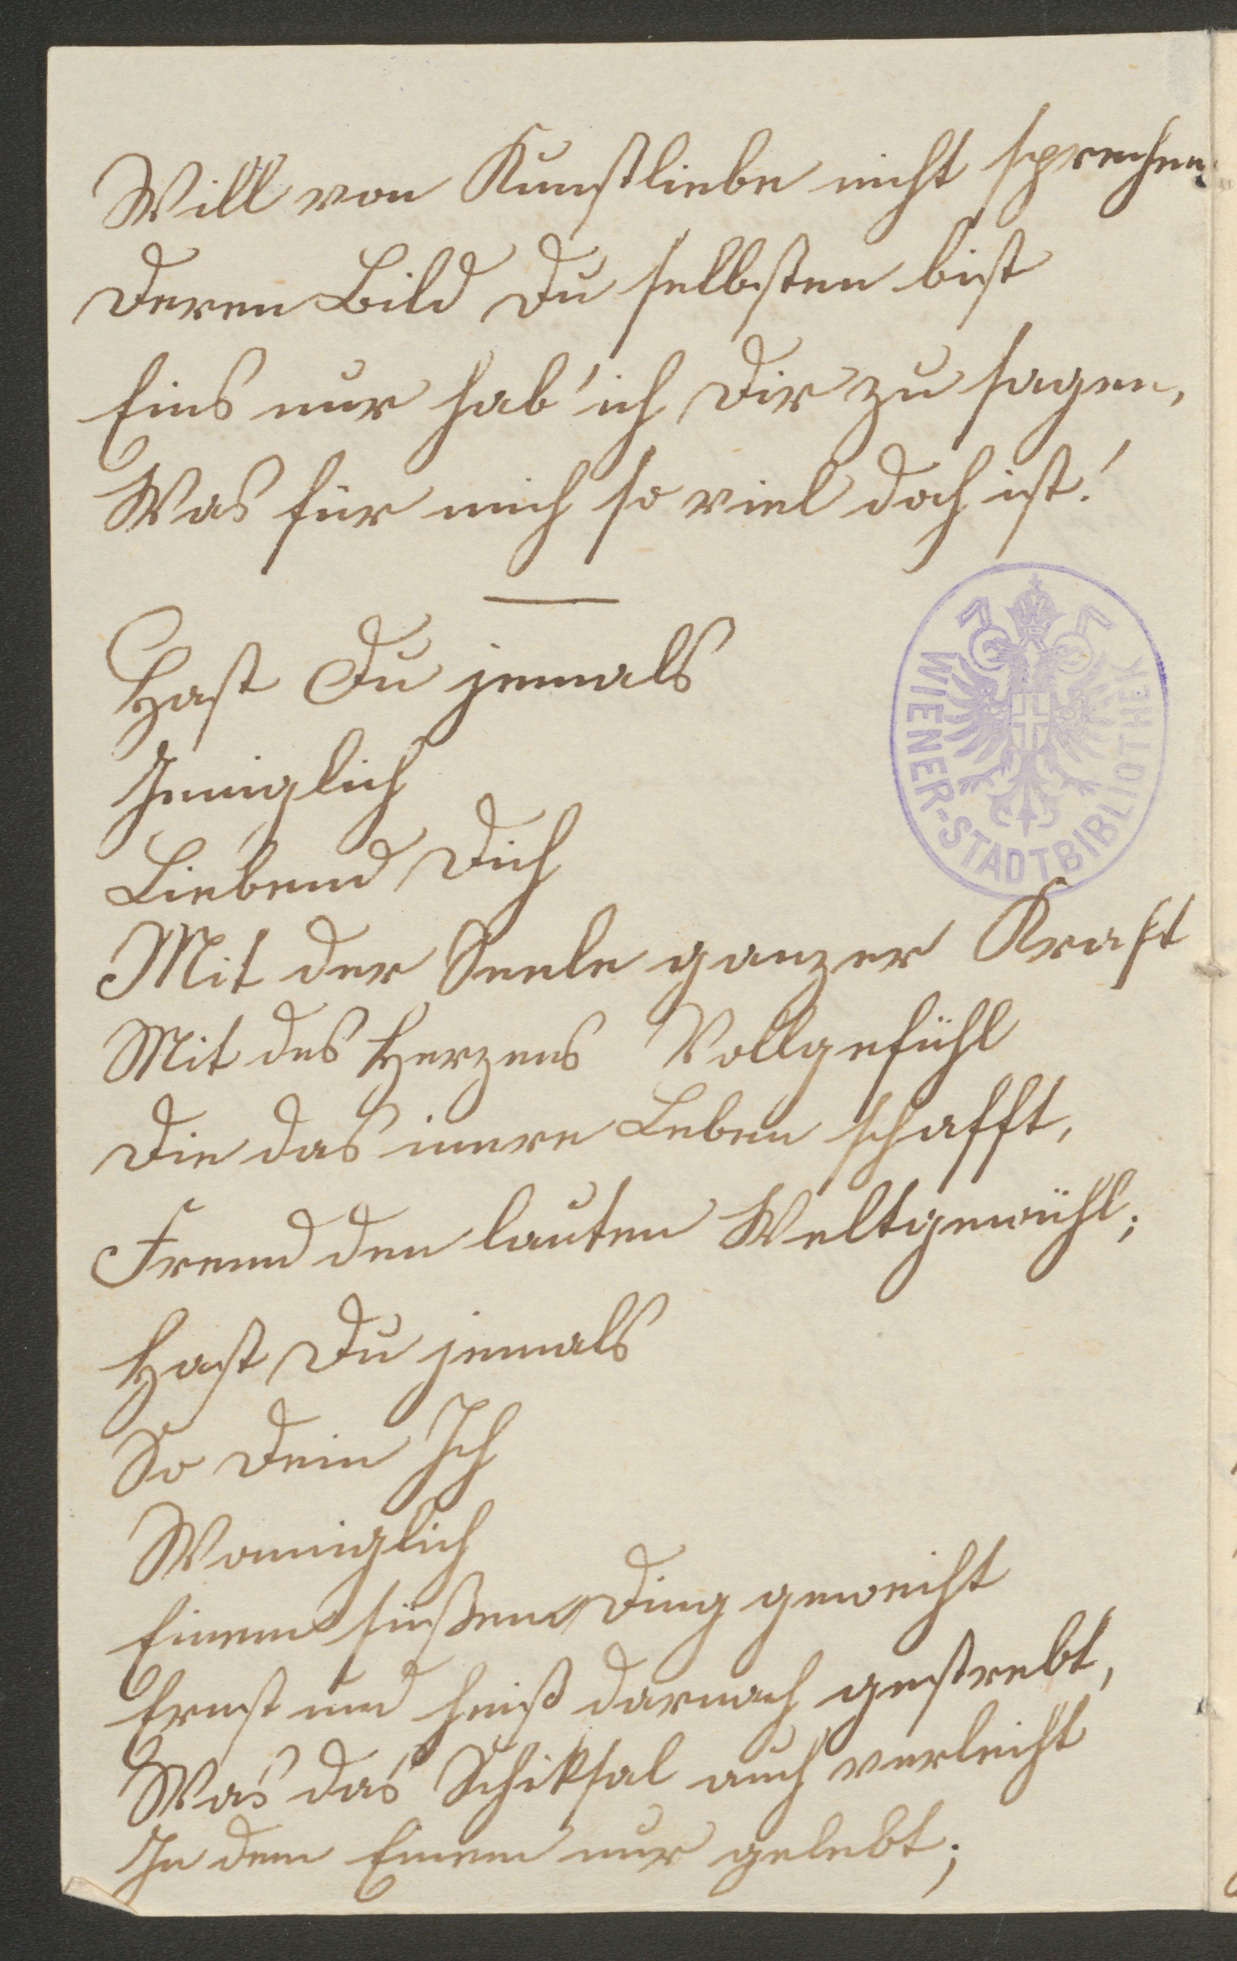 Will von Kunstliebe nicht sprechen,
Deren Bild Du selbsten bist
Eins nur hab' ich Dir zu sagen,
Was für mich so viel doch ist!
Hast Du jemals
Inniglich
Liebend Dich
Mit der Seele ganzer Kraft
Mit des Herzens Vollgefühl
Die das innere Leben schafft,
Fremd den lauten Weltgewühl;
Hast Du jemals
So Dein Ich
Wonniglich
Einem süßen Ding geweiht
Ernst und heiß darnach gestrebt,
Was das Schiksal auch verleiht
In dem Einem nur gelebt;
WIENER-STADTBIBLIOTHEK